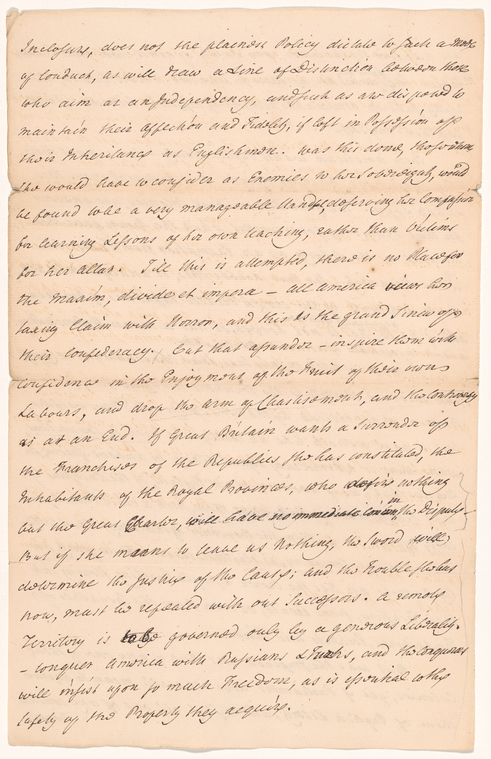 Inclosure, does not the plainest Policy dictate to such a mode
of Conduct, as will draw a Line of Distinction between those
who aim at an Independency, and such as are disposed to
maintain their Affection and Fidelity, if left in Possession of
their Inheritance as Englishmen. Was this done, those whom
she would have to consider as Enemies to her Sovereignty, would
be found to be a very manageable deserving her Compassion
for learning Lessons of her own teaching, rather than Victims
for her altar. Till this is attempted, there is no Place for
the Maxim, divide et impera – all america views her
taxing Claim with Horror, and this is the grand Sinew of
their Confederacy. Cut that assunder – inspire them with
confidence in the Enjoyment of the Fruit of their own
Labours, and drop the arm of Chastisement, and the Controversy
is at an End. If Great Britain wants a Surrender of
the Franchises of the Republics she has constituted, the
Inhabitants of the Royal Provinces, who desire nothing
but the Great Charter, will have no immediate Concern in the Dispute –
But if she means to leave us Nothing, the Sword will
determine the Justice of the Cause; and the Trouble she has
now, must be repeated with our Successors. a remote
Territory is to be governed only by a generous Liberality.
– conquer America with Russians & Turks, and the Conquerors
will insist upon so much Freedom, as is essential to the
safety of the Property they acquire.